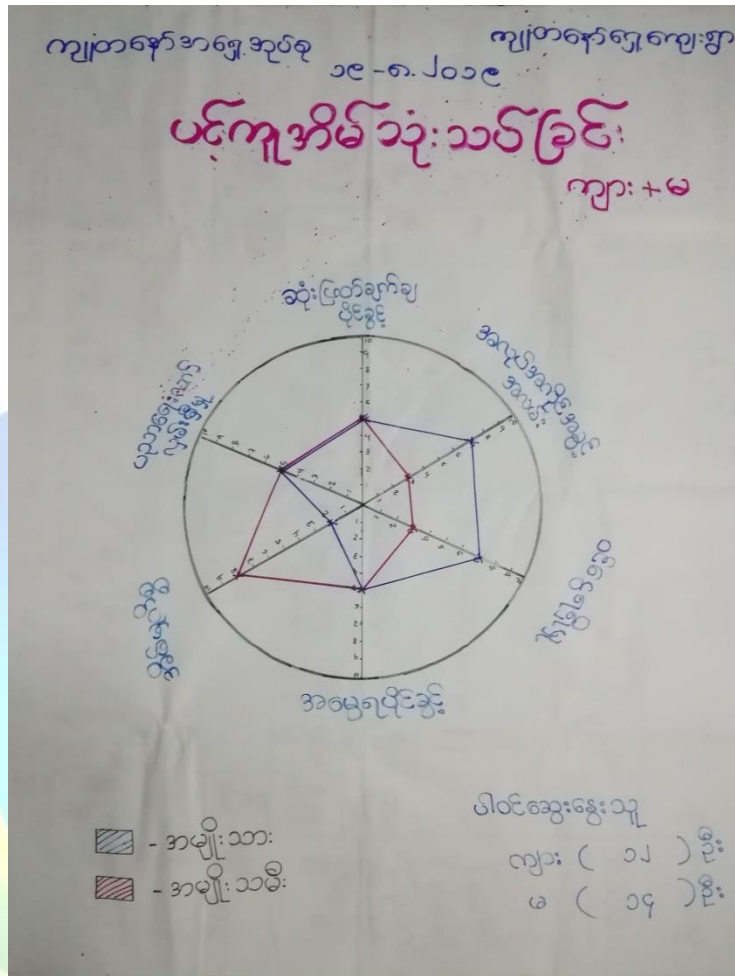 ကျုံတနော်အရှေ့အုပ်စု
ကျုံတနော်ရှေ့ကျေးရွာ
၁၉-၈.၂၀၁၉
ပင့်ကူအိမ်သုံးသပ်ခြင်း
ကျား + မ
ဆုံးဖြတ်ချက်ချ
ပိုင်ခွင့်
အလုပ်အကိုင်အခွင့်
အလမ်း
အမွေရပိုင်ခွင့်
- အမျိုးသား
- အမျိုးသမီး
ပါဝင်ဆွေးနွေးသူ
ကျား ( ၁၂ ) ဦး
မ ( ၁၄ ) ဦး